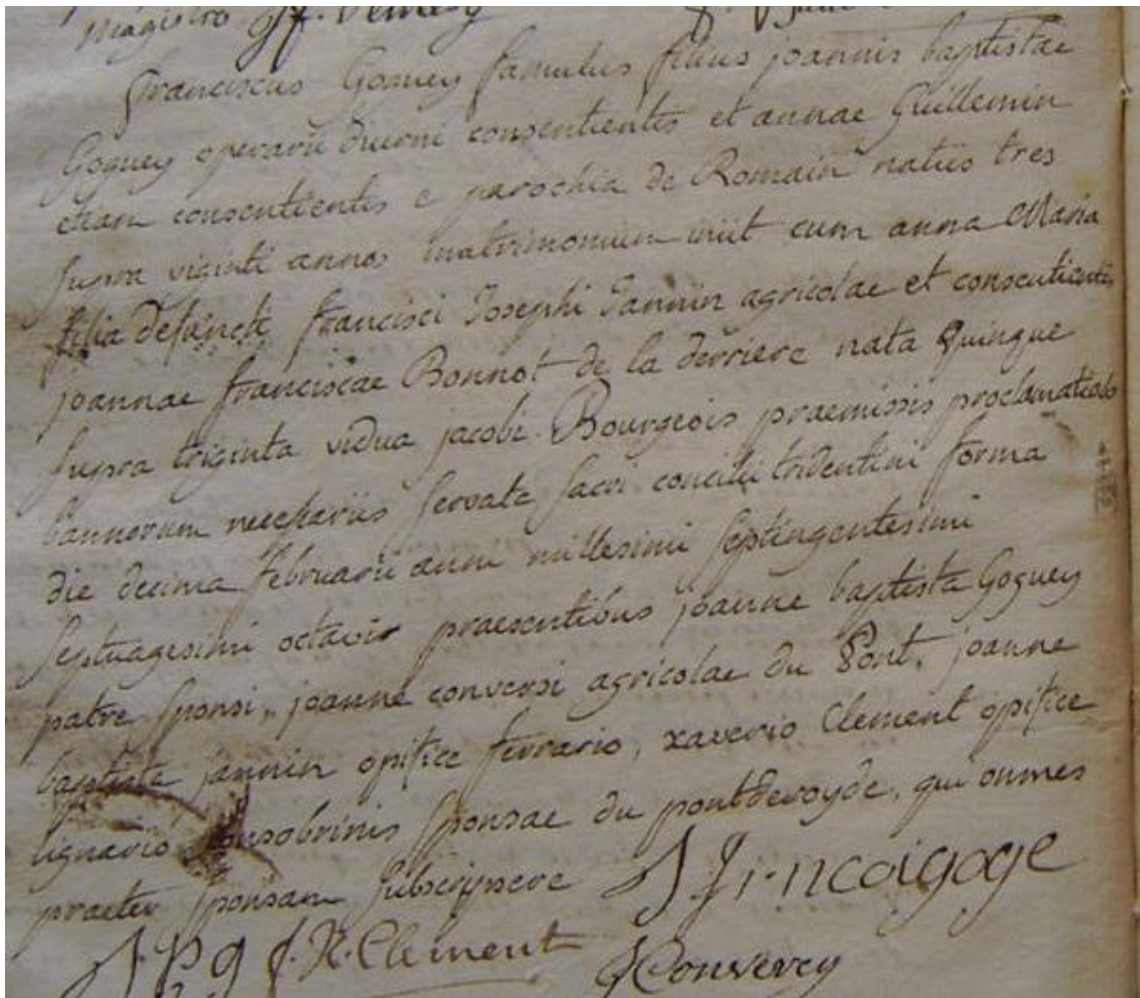 magistro
franciscus Goguey famulus filius joannis baptistae
Goguey operarii diurni consentientis et annae Guillemin
etiam consentientis e parochia de Romain natus tres
supra viginti annos matrimonium iniit cum anna Maria
filia defuncti francisci Josephi Jannin agricolae et consentientis
joannae franciscae Bonnot de la derriere nata quinque
supra triginta vidua jacobi Bourgeois praemissis proclamationibus
bannorum necessariis servata sacri concilii tridentini forma
die decima februarii anni millesimi septingentesimi
septuagesimi octavi praesentibus joanne baptista Goguey
patre sponsi, joanne conversi agricolae du Pont, joanne
baptista jannin opifice ferrario, xaverio Clement opifice
lignario consobrinis sponsae du pontdevoyde, qui omnes
praeter sponsam subscripsere J fr.ncoigoge
J. B g f. X. Clement J Conversy